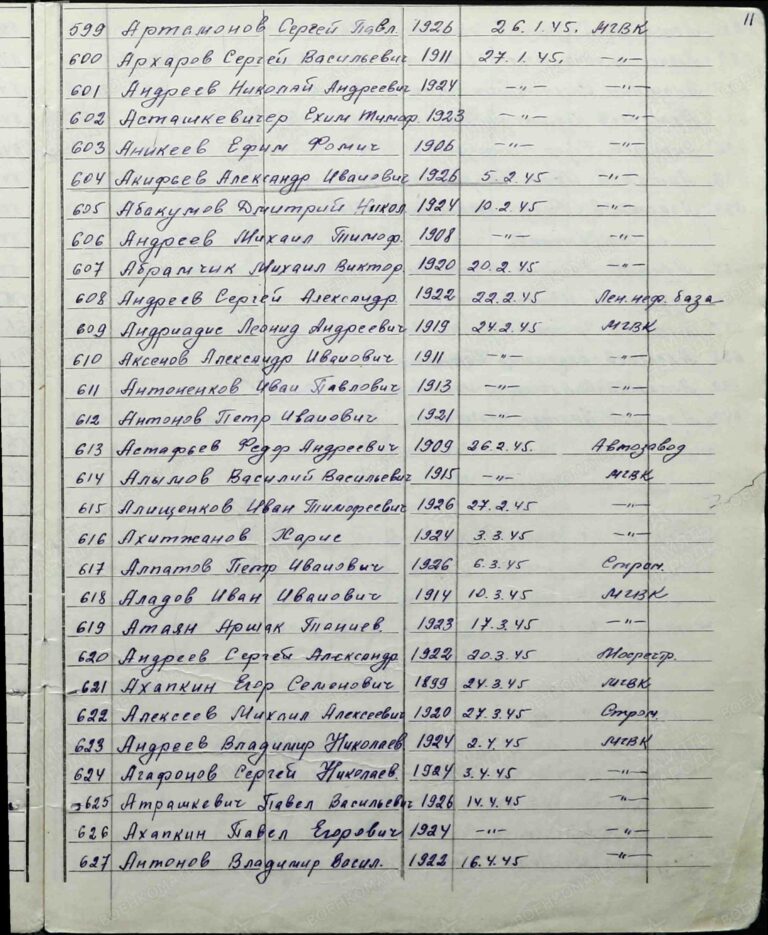 11
599 Артамонов Сергей Павл. 1926 26.1.45. МГВК
600 Архаров Сергей Васильевич 1911 27.1.45. —"—
601 Андреев Николай Андреевич 1924 —"— —"—
602 Асташкевичер Ехим Тимоф. 1923 —"— —"—
603 Аникеев Ефим Фомич 1906 —"— —"—
604 Акифьев Александр Иванович 1926 5.2.45 —"—
605 Абакумов Дмитрий Никол. 1924 10.2.45 —"—
606 Андреев Михаил Тимоф. 1908 —"— —"—
607 Абрамчик Михаил Виктор. 1920 20.2.45 —"—
608 Андреев Сергей Александр. 1922 22.2.45 Лен.неф.база
609 Андриадис Леонид Андреевич 1919 24.2.45 МГВК
610 Аксенов Александр Иванович 1911 —"— —"—
611 Антоненков Иван Павлович 1913 —"— —"—
612 Антонов Петр Иванович 1921 —"— —"—
613 Астафьев Федор Андреевич 1909 26.2.45. Автозавод
614 Алымов Василий Васильевич 1915 —"— МГВК
615 Алищенков Иван Тимофеевич 1926 27.2.45 —"—
616 Ахитжанов Харис 1924 3.3.45 —"—
617 Алпатов Петр Иванович 1926 6.3.45 Стром.
618 Аладов Иван Иванович 1914 10.3.45 МГВК
619 Атаян Аршак Таниев. 1923 17.3.45 —"—
620 Андреев Сергей Александр. 1922 20.3.45
621 Ахапкин Егор Семенович 1899 24.3.45 МГВК
622 Алексеев Михаил Алексеевич 1920 27.3.45 Стром.
623 Андреев Владимир Николаев. 1924 2.4.45 МГВК
624 Агафонов Сергей Николаев. 1924 3.4.45 —"—
625 Атрашкевич Павел Васильевич 1926 14.4.45 —"—
626 Ахапкин Павел Егорович 1924 —"— —"—
627 Антонов Владимир Васил. 1922 16.4.45 —"—